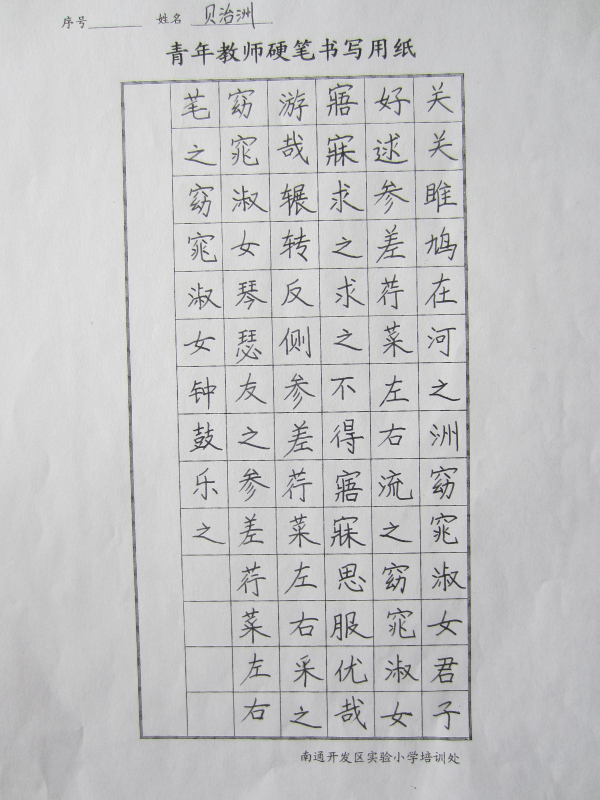 序号 姓名 贝治洲
青年教师硬笔书写用纸
关关雎鸠在河之洲窈窕淑女君子
好逑参差荇菜左右流之窈窕淑女
寤寐求之求之不得寤寐思服优哉
游哉辗转反侧参差荇菜左右采之
窈窕淑女琴瑟友之参差荇菜左右
芼之窈窕淑女钟鼓乐之
南通开发区实验小学培训处